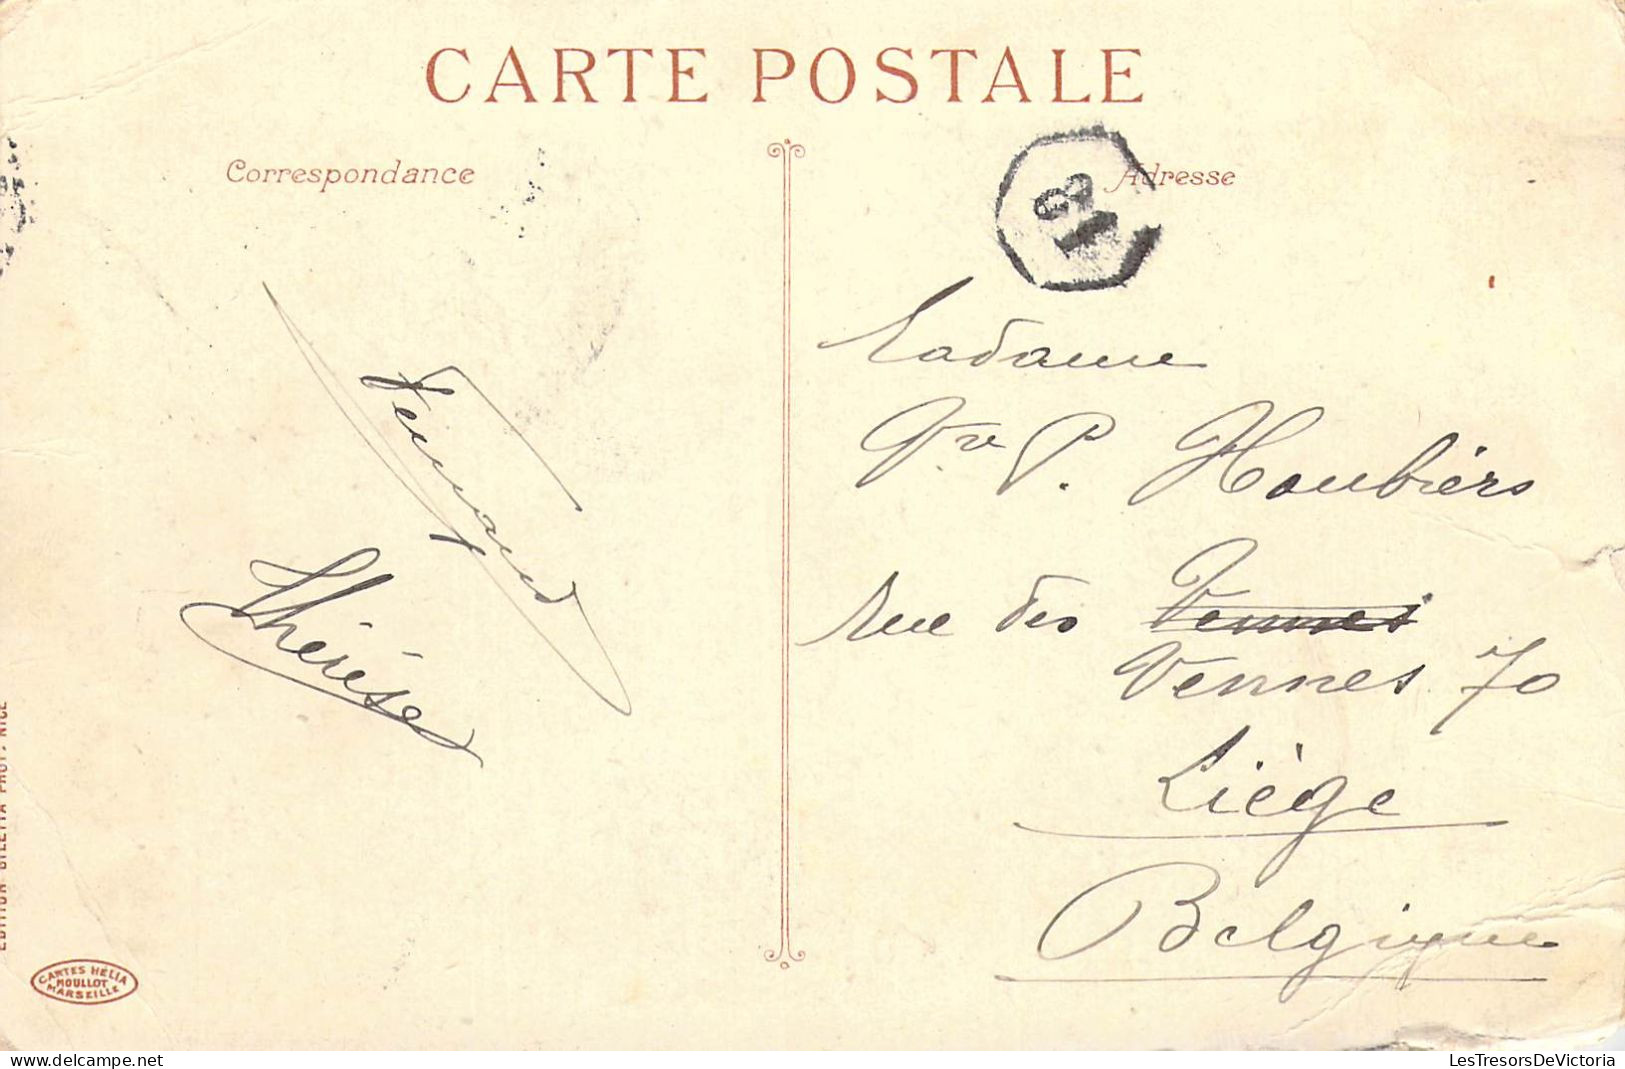 CARTE POSTALE
Correspondance
Adresse
18
Fernand
Thérèse
Madame
Vve P. Houbiers
Rue des Vennes
Vennes 70
Liège
Belgique
EDITION GILETTA PHOT, NICE
CARTES HELIA
MOULLOT
MARSEILLE
LesTresorsDeVictoria
www.delcampe.net